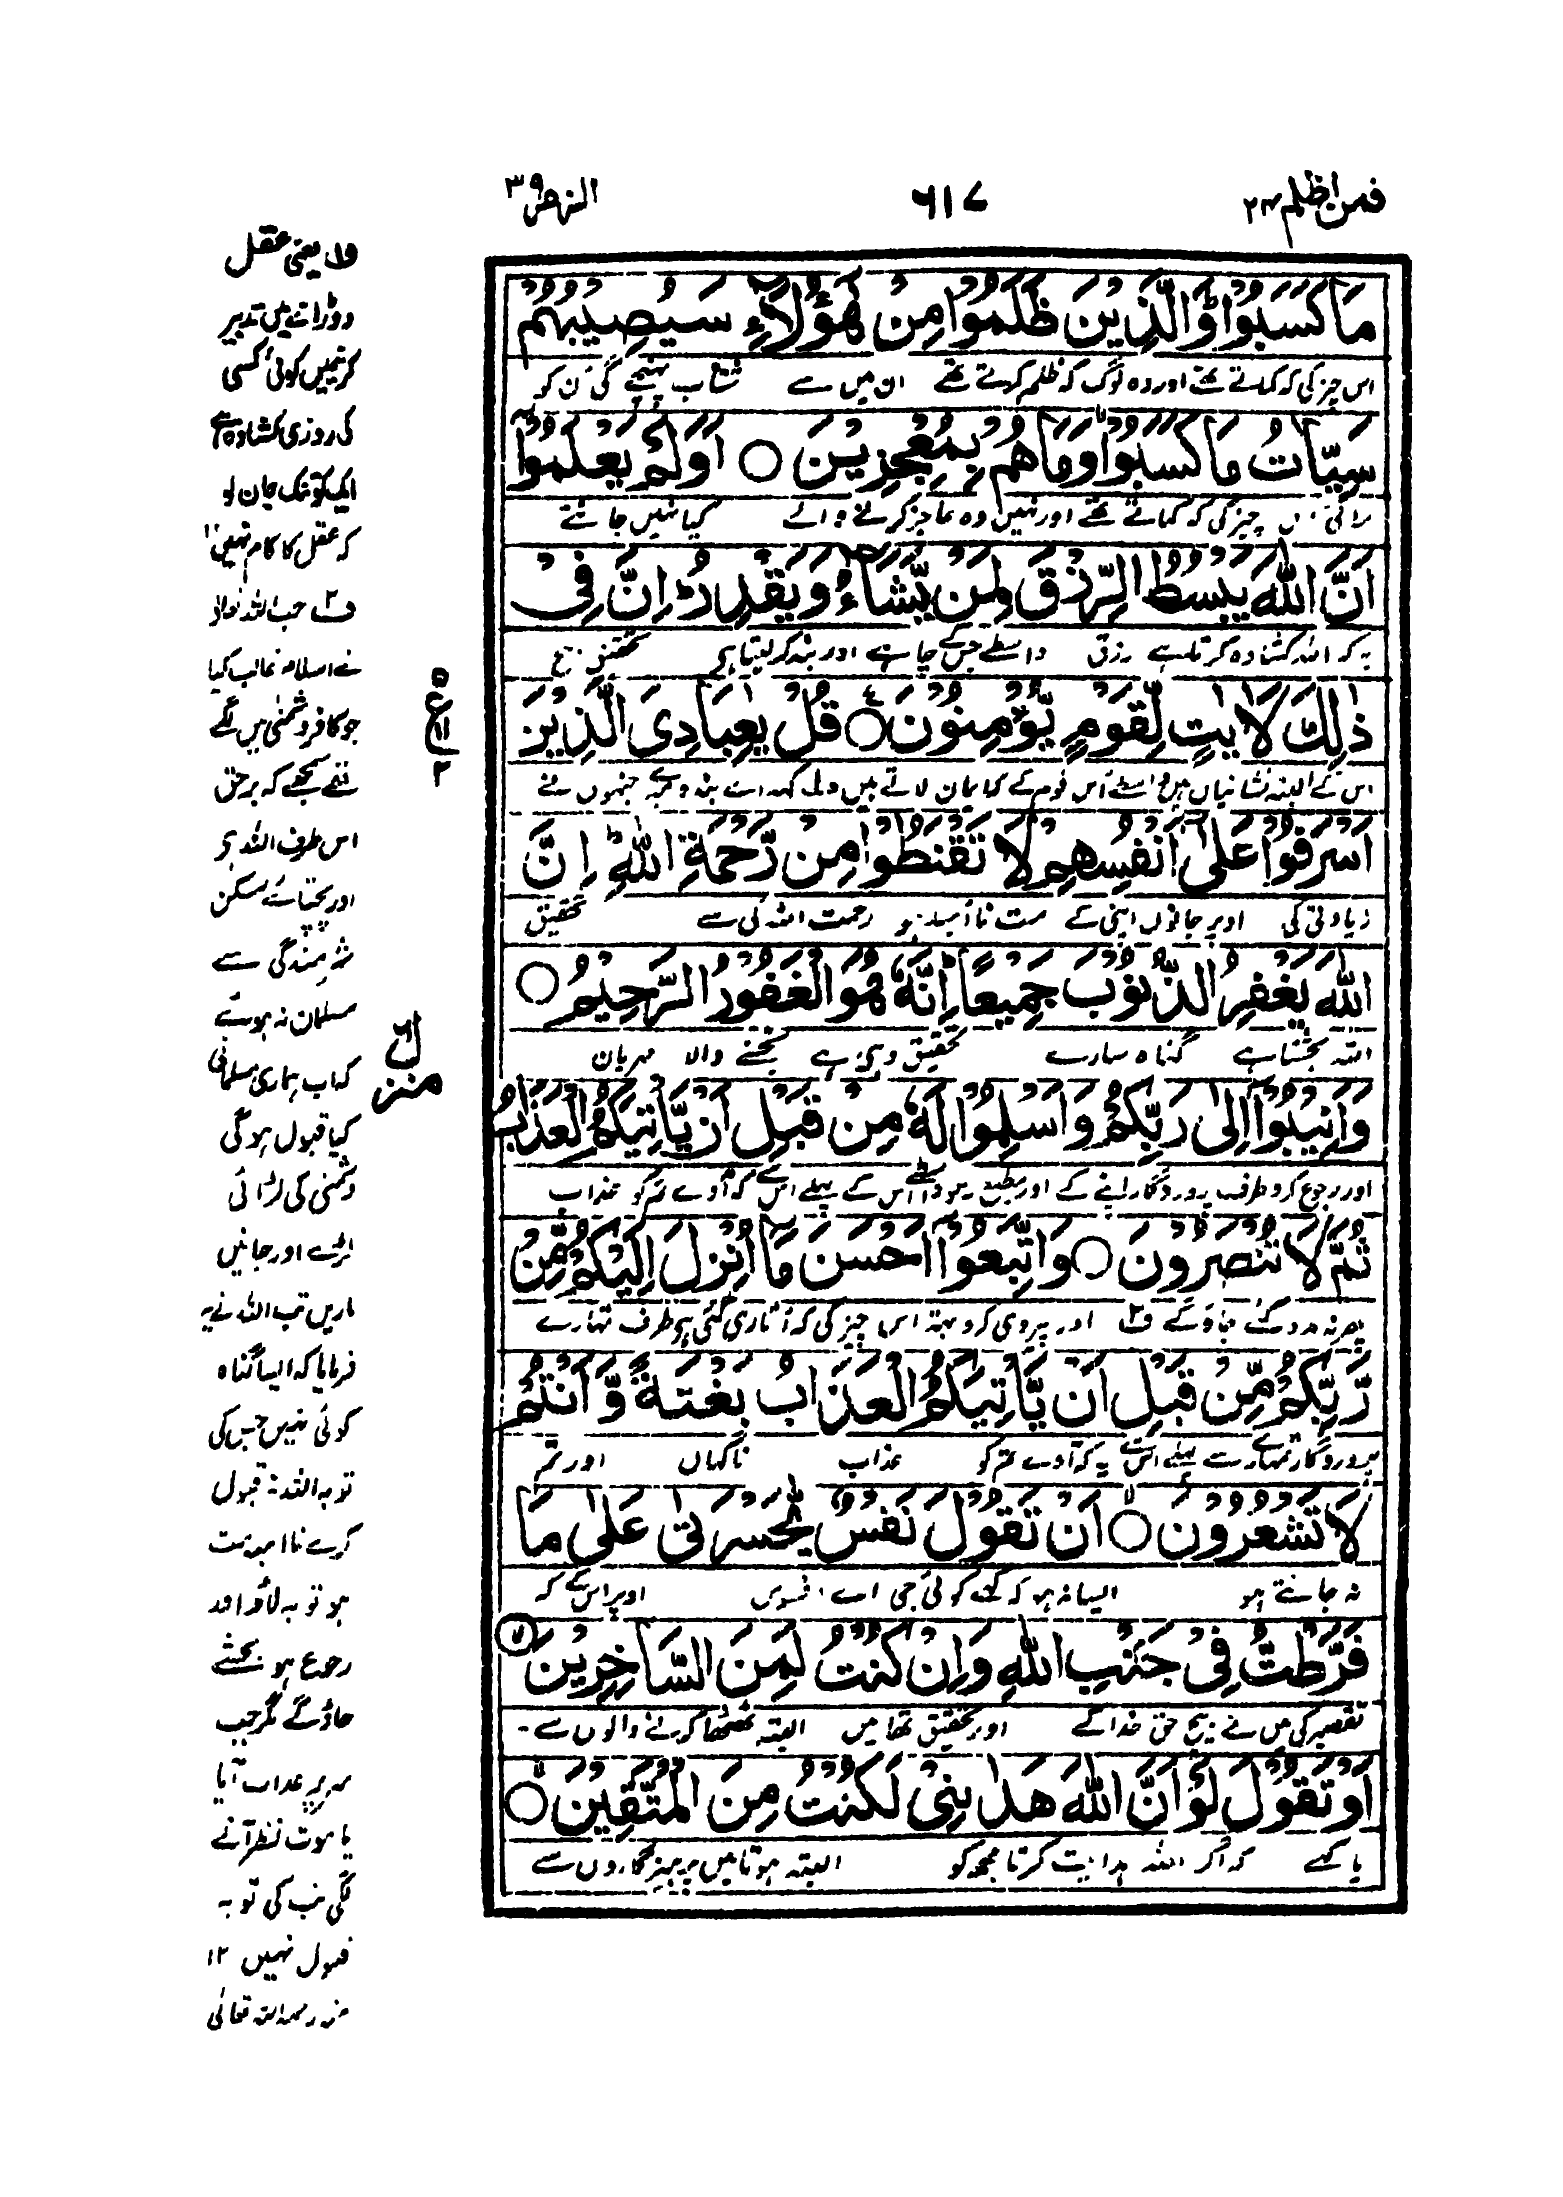 فمن اظلم ۲۴
۶۱۷
الزمر ۳۹
مَا كَسَبُوْا ؕ وَالَّذِيْنَ ظَلَمُوْا مِنْ هٰٓؤُلَآءِ سَيُصِيْبُهُمْ
اس چیز کی کہ کماتے تھے اور وہ لوگ کہ ظلم کرتے تھے ان میں سے شتاب پہنچے گی ان کو
سَيِّاٰتُ مَا كَسَبُوْا ۙ وَمَا هُمْ بِمُعْجِزِيْنَ ○ اَوَلَمْ يَعْلَمُوْٓا
چیز کی کہ کماتے تھے اور نہیں وہ عاجز کرنے والے کیا نہیں جانتے
اَنَّ اللّٰهَ يَبْسُطُ الرِّزْقَ لِمَنْ يَّشَآءُ وَيَقْدِرُ ؕ اِنَّ فِيْ
یہ کہ اللہ کشادہ کرتا ہے رزق واسطے جس کے چاہے اور بند کر لیتا ہے تحقیق بیچ
ذٰلِكَ لَاٰيٰتٍ لِّقَوْمٍ يُّؤْمِنُوْنَ ○ قُلْ يٰعِبَادِيَ الَّذِيْنَ
اس کے البتہ نشانیاں ہیں واسطے اس قوم کے کہ ایمان لاتے ہیں ف۱ کہہ اے بندو میرے جنہوں نے
اَسْرَفُوْا عَلٰٓى اَنْفُسِهِمْ لَا تَقْنَطُوْا مِنْ رَّحْمَةِ اللّٰهِ ؕ اِنَّ
زیادتی کی اوپر جانوں اپنی کے مت ناامید ہو رحمت اللہ کی سے تحقیق
اللّٰهَ يَغْفِرُ الذُّنُوْبَ جَمِيْعًا ؕ اِنَّهٗ هُوَ الْغَفُوْرُ الرَّحِيْمُ ○
اللہ بخشتا ہے گناہ سارے تحقیق وہی ہے بخشنے والا مہربان
وَاَنِيْبُوْٓا اِلٰى رَبِّكُمْ وَاَسْلِمُوْا لَهٗ مِنْ قَبْلِ اَنْ يَّاْتِيَكُمُ الْعَذَابُ
اور رجوع کرو طرف پروردگار اپنے کے اور مطیع رہو واسطے اس کے پہلے اس سے کہ آوے تم کو عذاب
ثُمَّ لَا تُنْصَرُوْنَ ○ وَاتَّبِعُوْٓا اَحْسَنَ مَآ اُنْزِلَ اِلَيْكُمْ مِّنْ
پھر نہ مدد کئے جاؤ گے ف۲ اور پیروی کرو بہتر اس چیز کی کہ اتاری گئی ہے طرف تمہارے
رَّبِّكُمْ مِّنْ قَبْلِ اَنْ يَّاْتِيَكُمُ الْعَذَابُ بَغْتَةً وَّاَنْتُمْ
پروردگار تمہارے سے پہلے اس سے یہ کہ آوے تم کو عذاب ناگہاں اور تم
لَا تَشْعُرُوْنَ ○ اَنْ تَقُوْلَ نَفْسٌ يّٰحَسْرَتٰى عَلٰى مَا
نہ جانتے ہو ایسا نہ ہو کہ کہے کوئی جی اے افسوس اوپر اس کے کہ
فَرَّطْتُّ فِيْ جَنْۢبِ اللّٰهِ وَاِنْ كُنْتُ لَمِنَ السَّاخِرِيْنَ
تقصیر کی میں نے بیچ حق خدا کے اور تحقیق تھا میں البتہ ٹھٹھا کرنے والوں سے۔
اَوْ تَقُوْلَ لَوْ اَنَّ اللّٰهَ هَدٰىنِيْ لَكُنْتُ مِنَ الْمُتَّقِيْنَ ○
یا کہے کہ اگر اللہ ہدایت کرتا مجھ کو البتہ ہوتا میں پرہیزگاروں سے
۵
ع
۱۱
۲
منزل ۶
ف۱ یعنی عقل
دوڑانے میں تدبیر
کرنے میں کوئی کسی
کی روزی کشادہ ہے
ایک کو تنگ جان لو
کہ عقل کا کام نہیں ۱۲
ف۲ جب اللہ تعالیٰ
نے اسلام غالب کیا
جو کافر دشمنی میں لگے
تھے سمجھے کہ برحق
اس طرف اللہ ہے
اور پچھتائے لیکن
شرمندگی سے
مسلمان نہ ہوئے
کہ اب ہماری مسلمانی
کیا قبول ہو گی
دشمنی کی لڑائی
لڑے اور جانیں
ماریں تب اللہ نے یہ
فرمایا کہ ایسا گناہ
کوئی نہیں جس کی
توبہ اللہ نہ قبول
کرے ناامید مت
ہو توبہ لاؤ اور
رجوع ہو بخشے
جاؤ گے مگر جب
سر پر عذاب آیا
یا موت نظر آنے
لگی تب کی توبہ
قبول نہیں ۱۲
رحمہ اللہ تعالیٰ